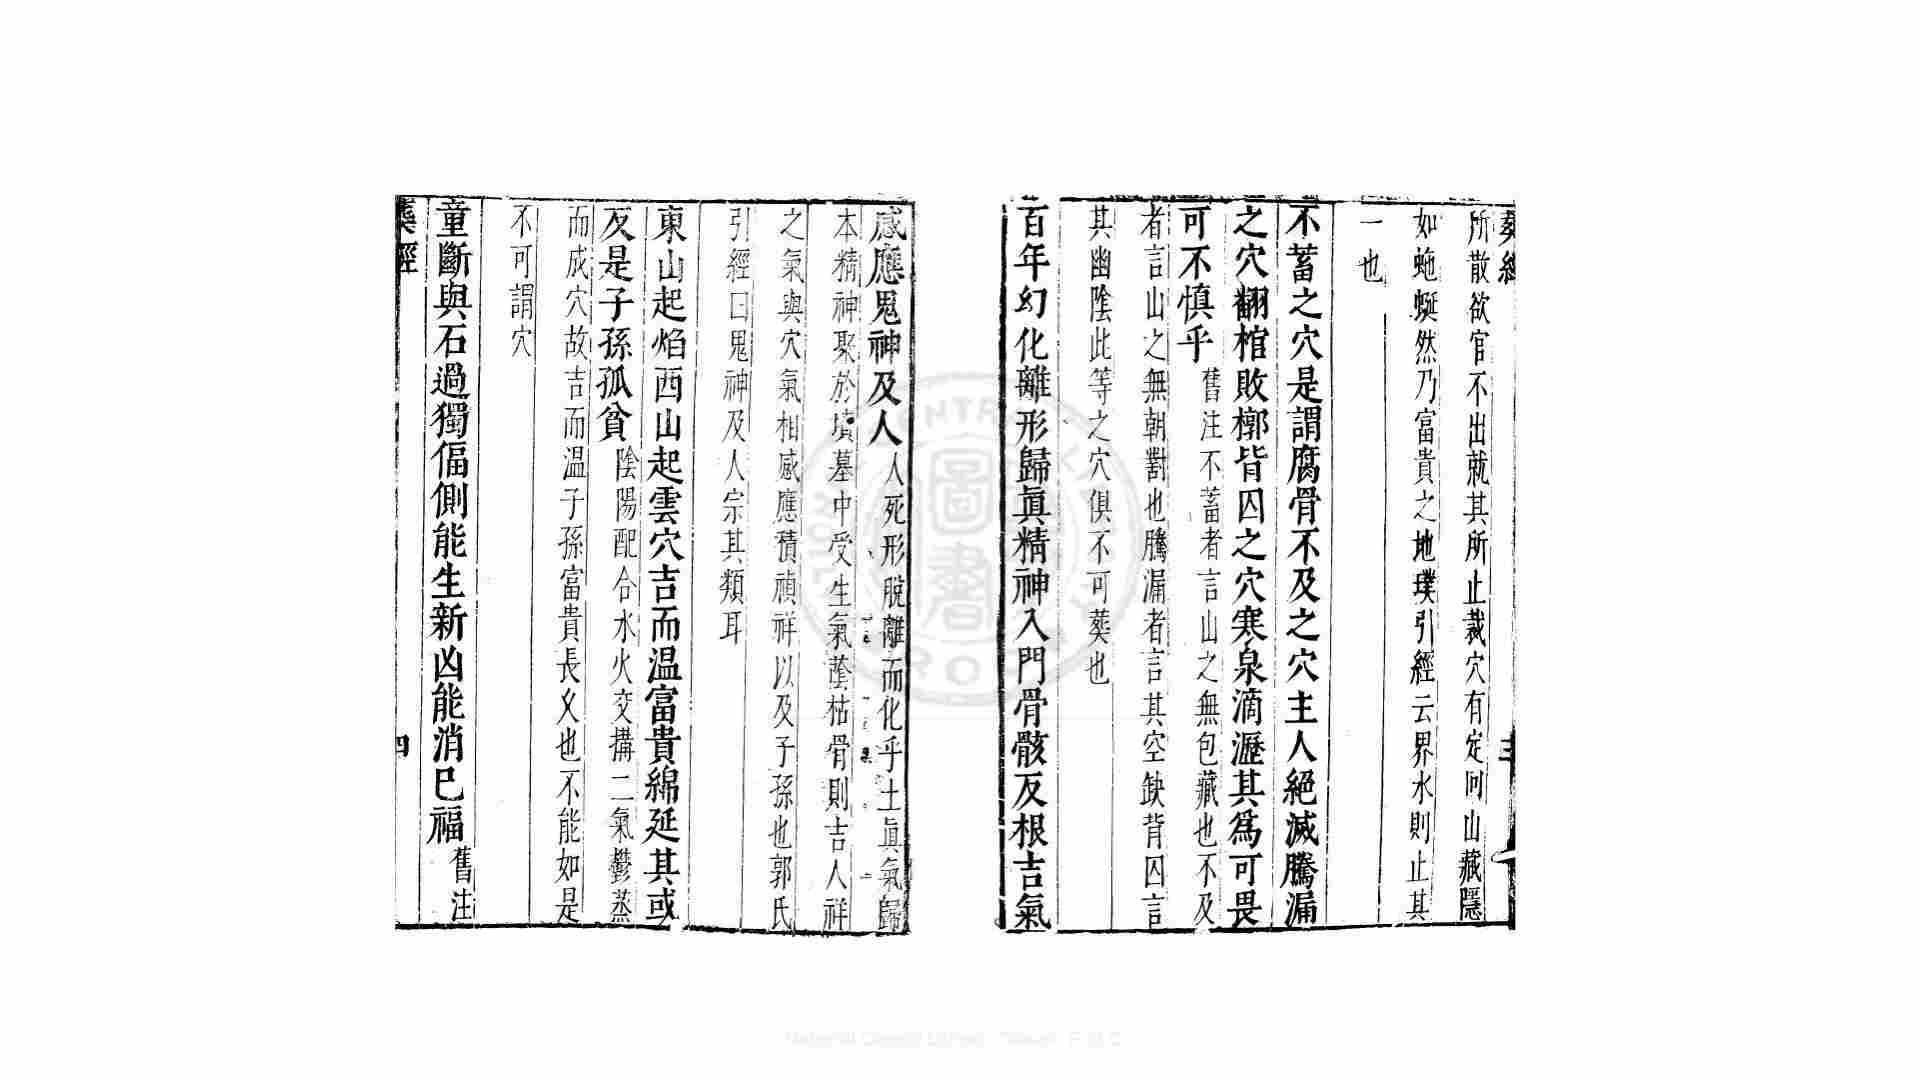 葬經
所散欲官不出就其所止裁穴有定向山藏隱
如虵蜒然乃富貴之地璞引經云界水則止其
一也
不蓄之穴是謂腐骨不及之穴主人絕滅騰漏
之穴翻棺敗槨背囚之穴寒泉滴瀝其為可畏
可不慎乎舊注不蓄者言山之無包藏也不及
者言山之無朝對也騰漏者言其空缺背囚言
其幽陰此等之穴俱不可葬也
百年幻化離形歸眞精神入門骨骸反根吉氣
感應鬼神及人人死形脫離而化乎土眞氣歸
本精神聚於墳墓中受生氣蔭枯骨則吉人祥
之氣與穴氣相感應積禎祥以及子孫也郭氏
引經曰鬼神及人宗其類耳
東山起焰西山起雲穴吉而温富貴綿延其或
反是子孫孤貧陰陽配合水火交搆二氣鬱蒸
而成穴故吉而温子孫富貴長乆也不能如是
不可謂穴
童斷與石過獨偪側能生新凶能消巳福舊注
葬經
四